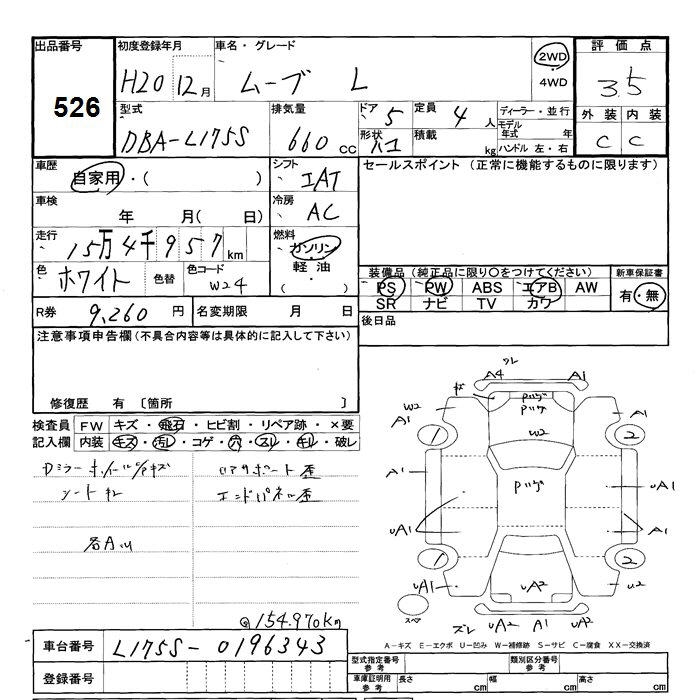 出品番号 初度登録年月 車名・グレード 2WD 評価点
526 H20 12月 ムーブ L 4WD 3.5
型式 排気量 ドア 5 定員 4人 ディーラー・並行 外装 内装
DBA-L175S 660cc 形状 積載 kg モデル年式 年 C C
ハンドル 左・右
車歴 シフト セールスポイント (正常に機能するものに限ります)
自家用・( ) IAT
車検 冷房
年 月( 日) AC
走行 燃料
15万4千957km ガソリン
色 色替 色コード 軽油 装備品(純正品に限り○をつけてください) 新車保証書
ホワイト W24 ( ) PS PW ABS エアB AW 有・無
SR ナビ TV カワ
R券 9,260円 名変期限 月 日 後日品
注意事項申告欄(不具合内容等は具体的に記入して下さい)
修復歴 有 〔箇所 〕
検査員 FW キズ・飛石・ヒビ割・リペア跡・×要
記入欄 内装 キズ・汚レ・コゲ・穴・スレ・キレ・破レ
シート
エンドパネル歪
各A
@154.970km
ズレ
A4 A1
W2
A1 A1
1 2
W2
A1 uA1
uA1 A1
1 2
uA1 uA2 u2
スペア
ズレ uA2 A1 uA2
A-キズ E-エクボ U-凹み W-補修跡 S-サビ C-腐食 XX-交換済
車台番号 L175S-0196343
登録番号
型式指定番号 参考 類別区分番号 参考
車庫証明用 参考 長さ cm 幅 cm 高さ cm